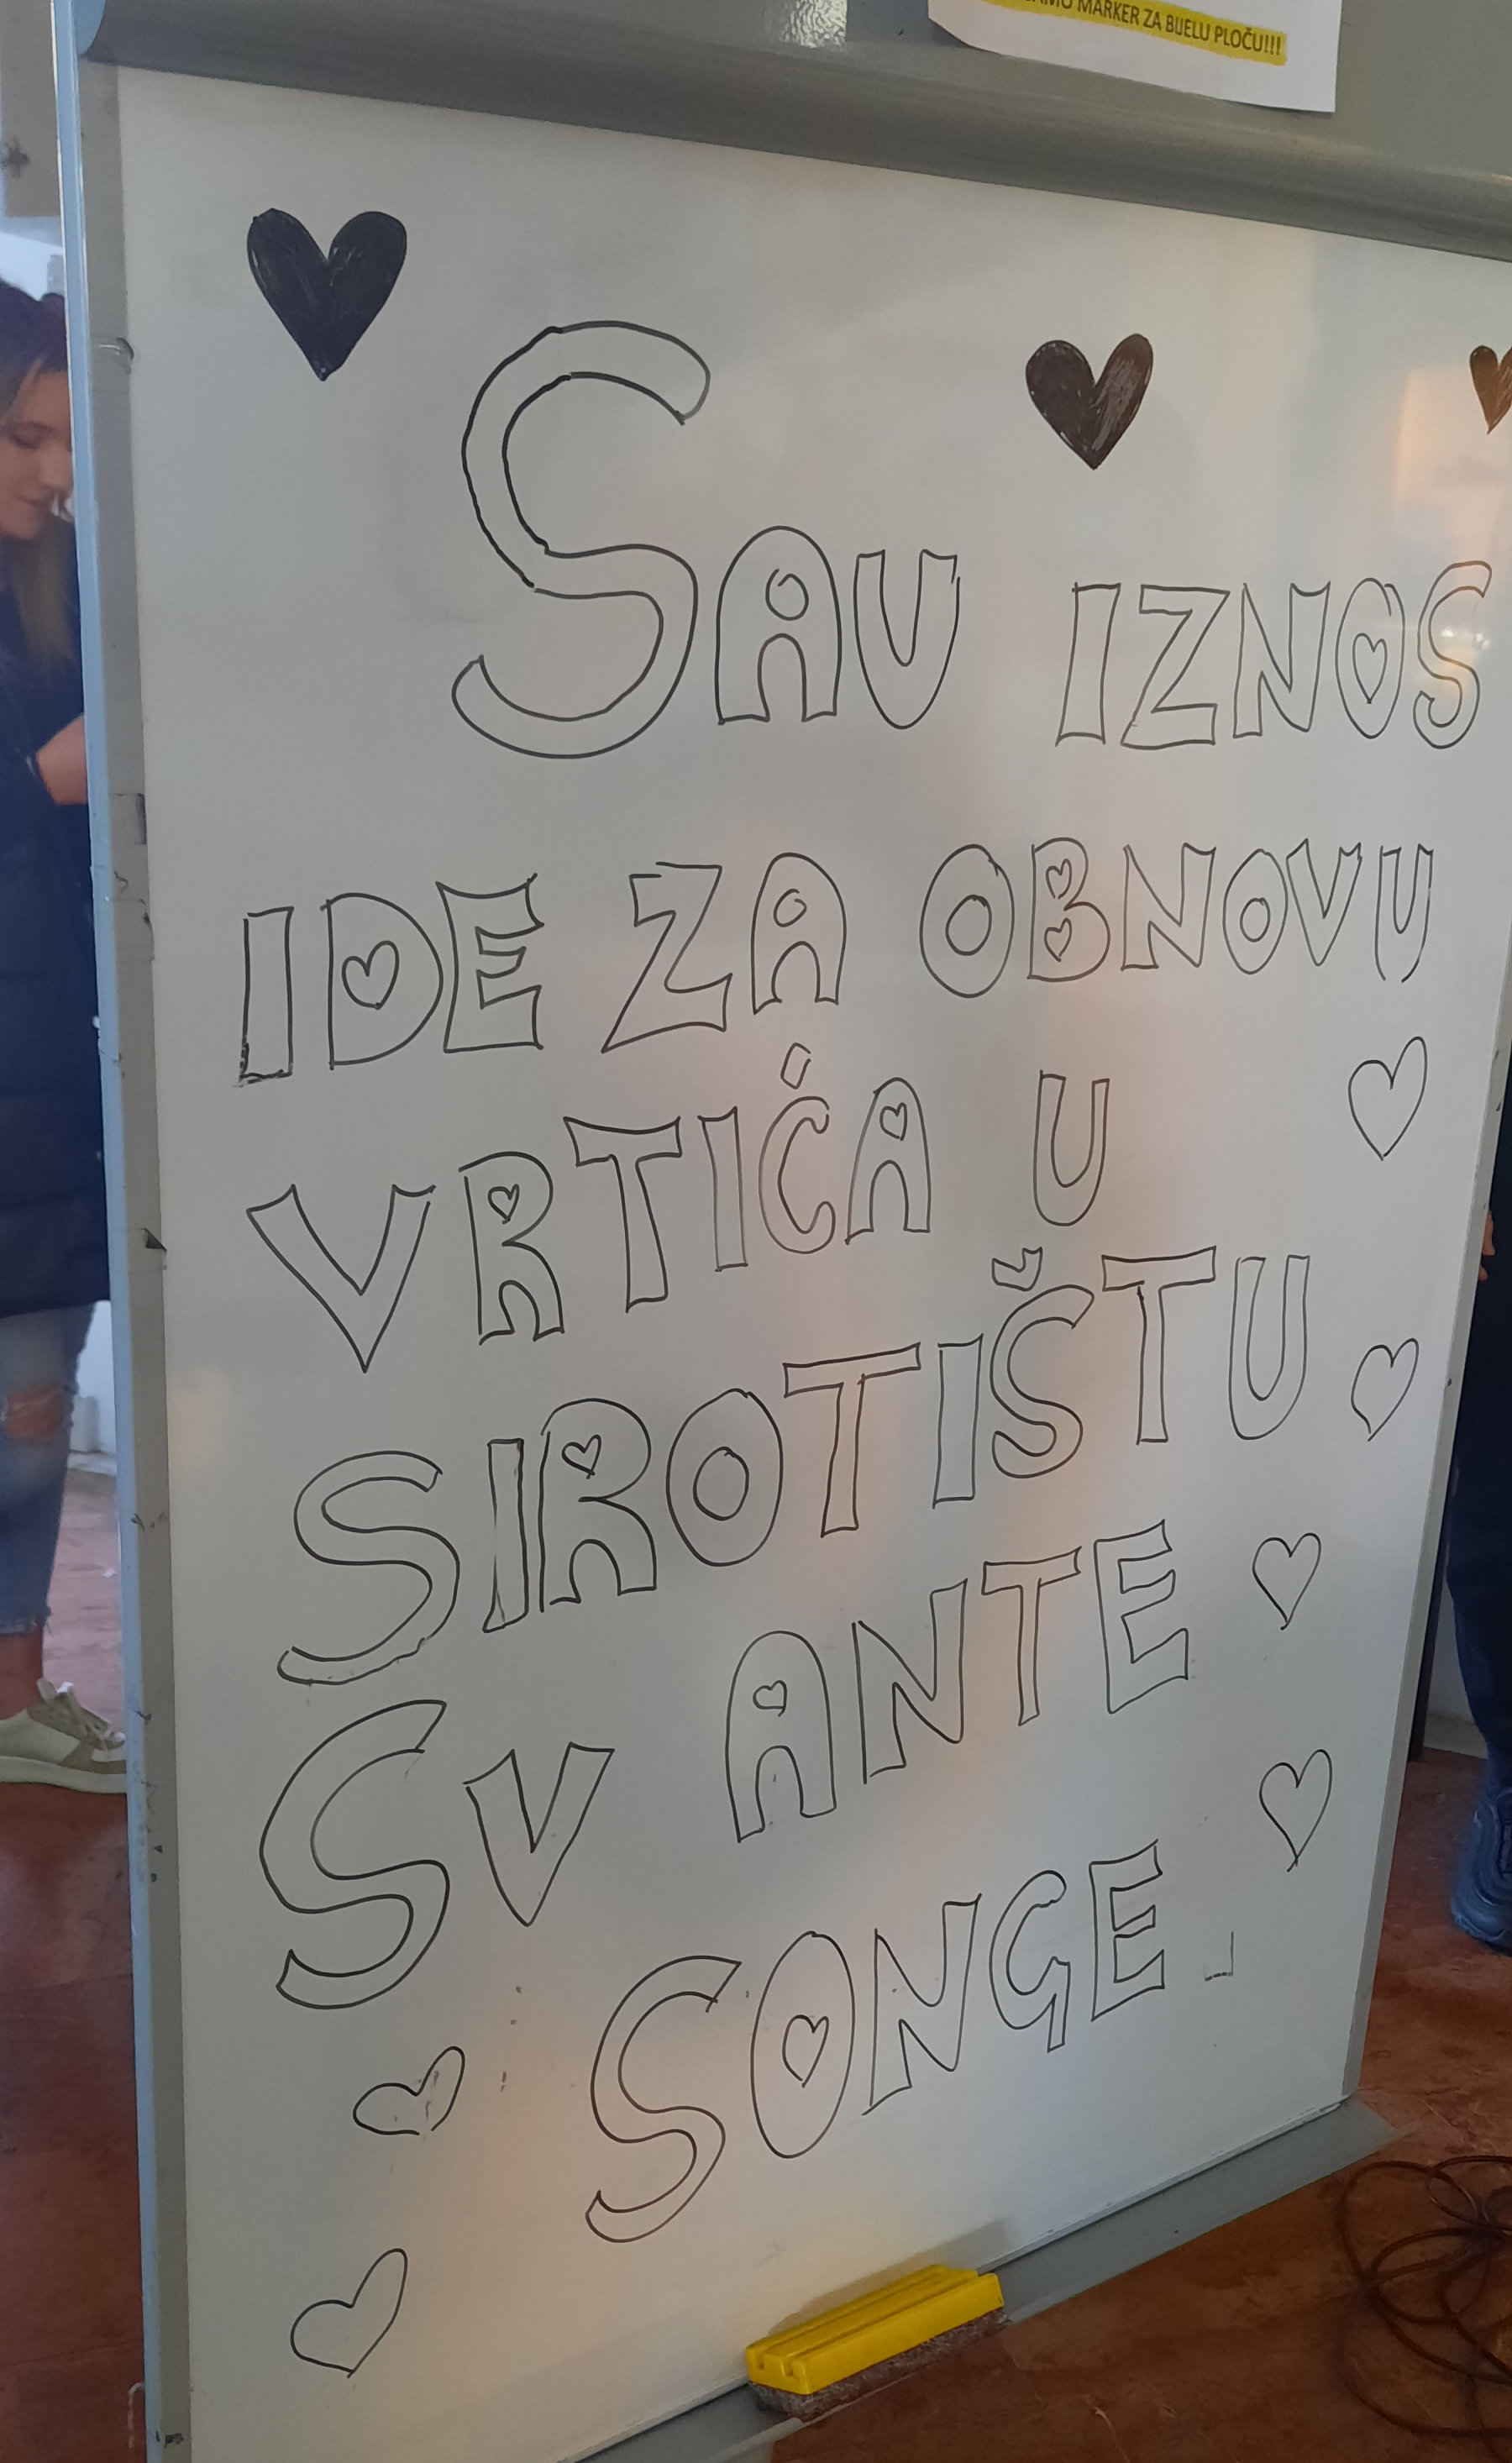 MARKER ZA BIJELU PLOČU!!!
SAU IZNOS
IDE ZA OBNOVU
VRTIĆA U
SIROTIŠTU
SV ANTE
SONGE